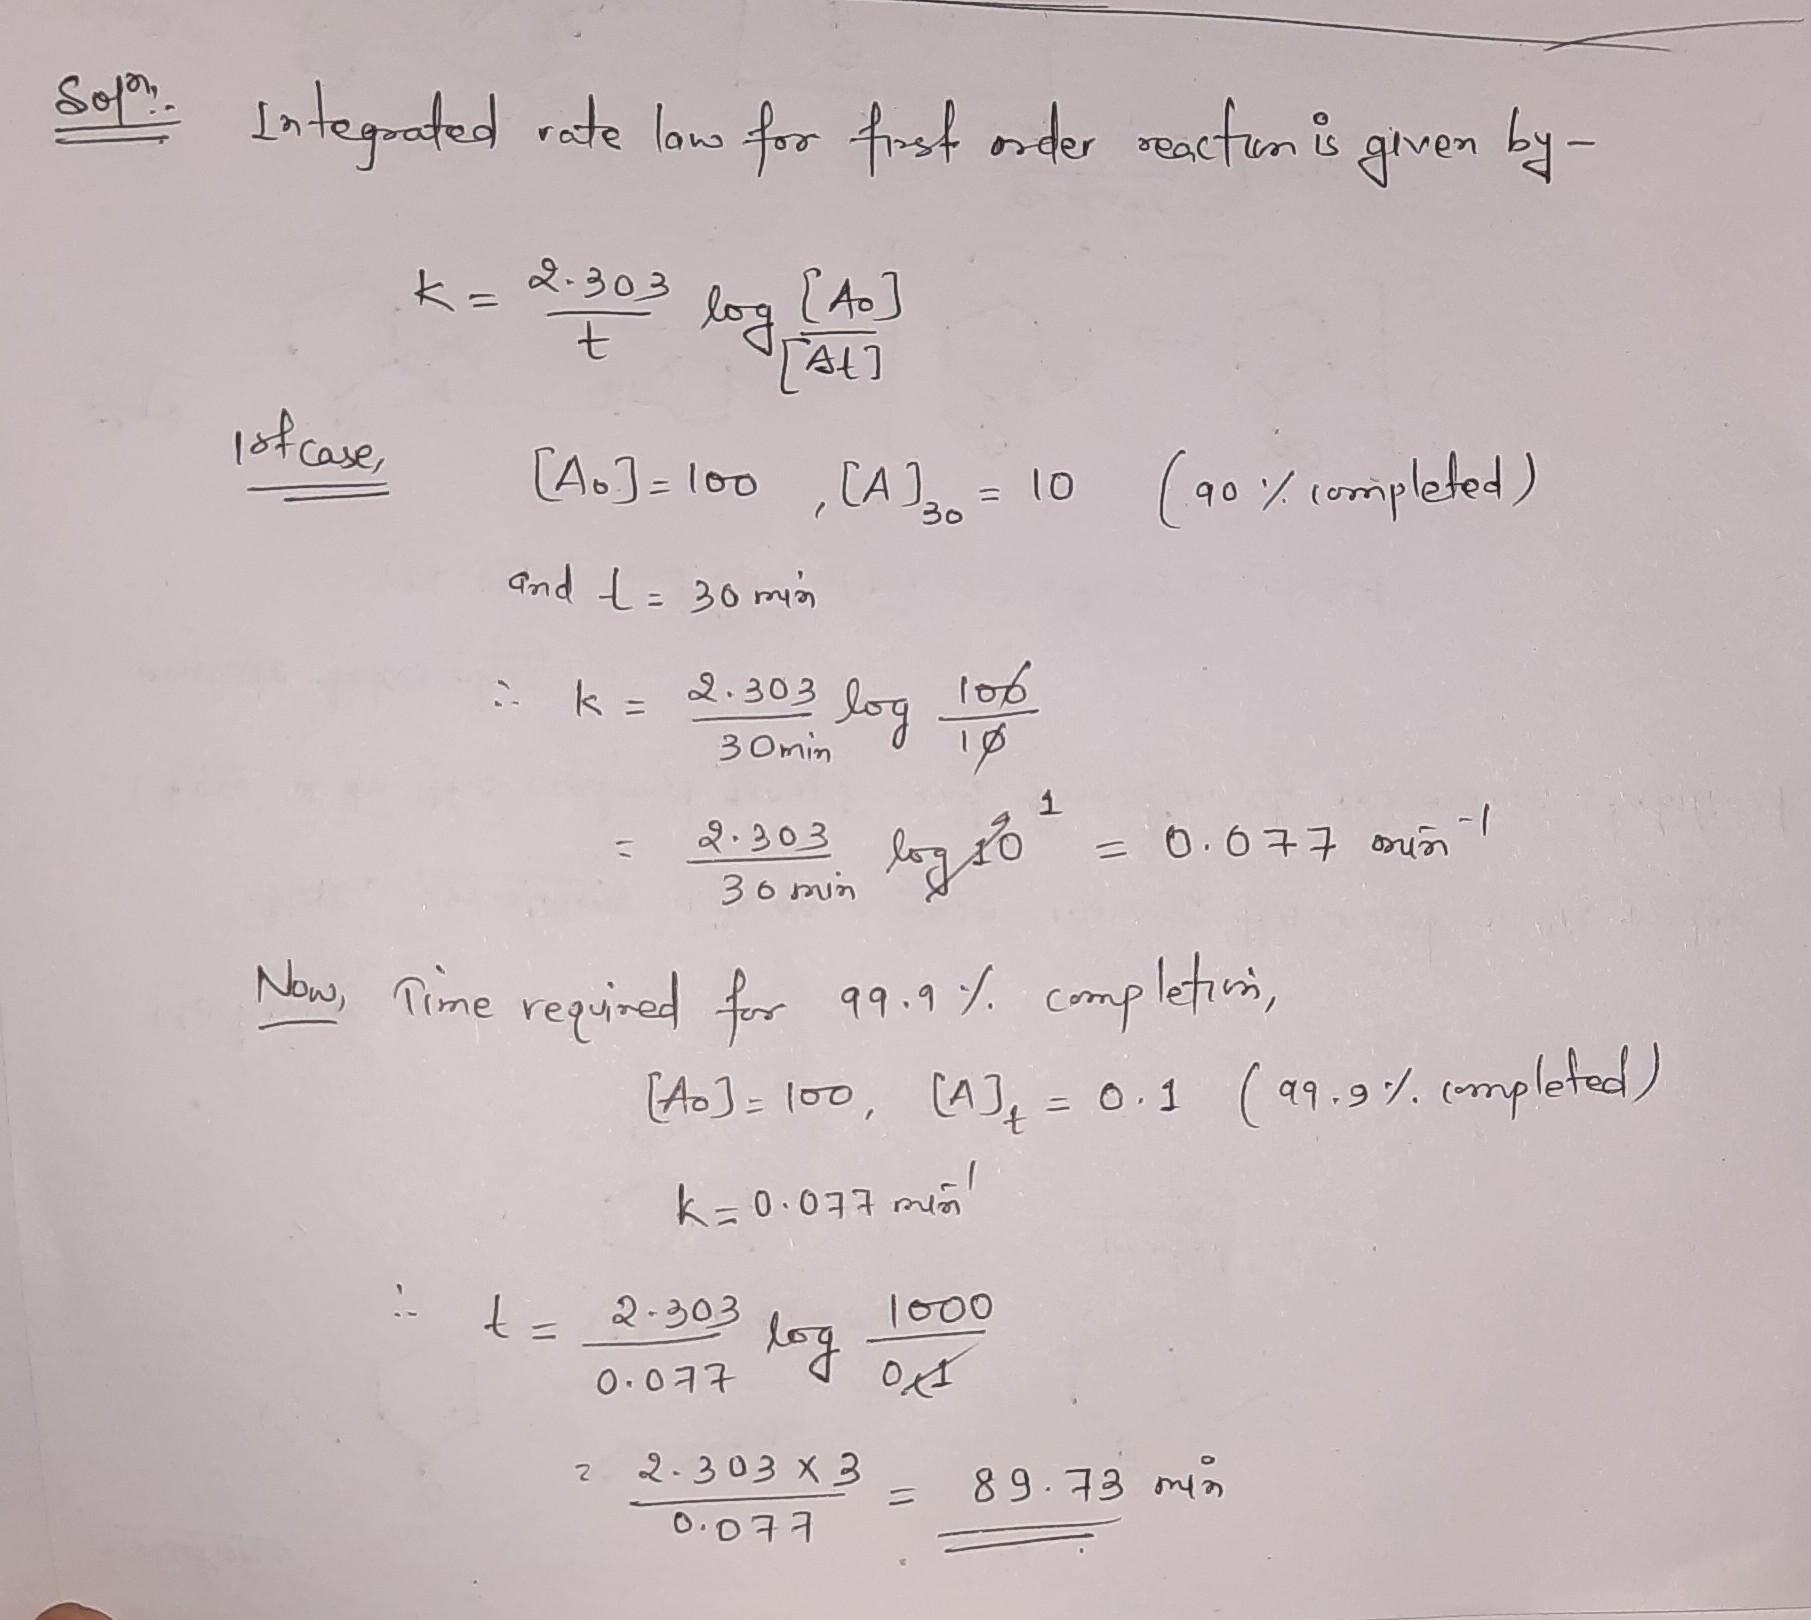 Solⁿ:-
Integrated rate law for first order reaction is given by -
k = 2.303/t log [A₀]/[At]
1st case,
[A₀] = 100 , [A]₃₀ = 10 (90 % completed)
and t = 30 min
∴ k = 2.303/30min log 100/10
= 2.303/30 min log 10 1 = 0.077 min⁻¹
Now, Time required for 99.9 % completion,
[A₀] = 100, [A]t = 0.1 (99.9 % completed)
k = 0.077 min⁻¹
∴ t = 2.303/0.077 log 1000/0.1
= 2.303 x 3/0.077 = 89.73 min